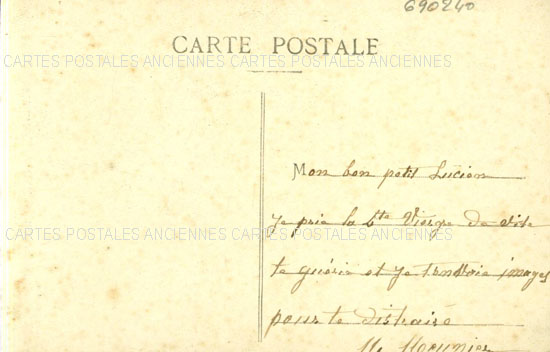 690240
CARTE POSTALE
CARTES POSTALES ANCIENNES CARTES POSTALES ANCIENNES
Mon bon petit Lucien
Je prie la Ste Vierge de vite
CARTES POSTALES ANCIENNES CARTES POSTALES ANCIENNES
te guérir et je t'envoie images
pour te distraire
M. Meunier